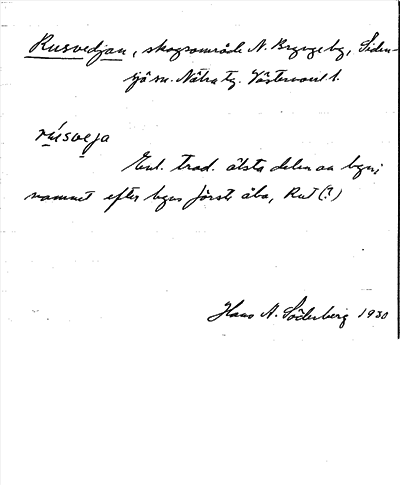 Rusvedjan, skogsområde N. Bryngeby, Siden-
sjö sn. Nätra tg. Västernorrl. l.
rúsveja
Enl. trad. älsta delen av byn;
namnet efter byns förste åbo, Rut (?)
Hans A. Söderberg 1930